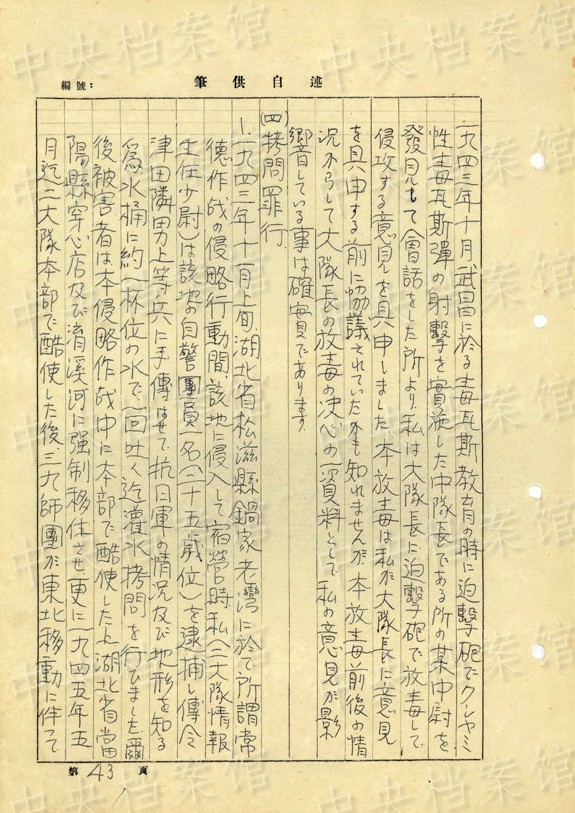 中央档案馆
編號：
筆供自述
一九四三年十月武昌に於る毒瓦斯教育の時に迫擊砲でクシャミ
性毒瓦斯彈の射擊を實施した中隊長である所の某中尉を
發見して會話をした所より、私は大隊長に迫擊砲で放毒して
侵攻する意見を具申しました、本放毒は私が大隊長に意見
を具申する前に協議されていたかも知れませんが、本放毒前後の情
況からして大隊長の放毒の決心の一資料として、私の意見が影
響している事は確實であります。
(四)拷問罪行
1.一九四三年十一月上旬、湖北省松滋縣鍋家老灣に於て所謂常
德作戰の侵略行動間、該地に侵入して宿營時、私(二大隊情報
主任少尉)は該地の自警團員一名(二十五歲位)を逮捕し傳令
津田隣男上等兵に手傳はせて、抗日軍の情況及び地形を知る
爲、水桶に約一杯位の水で、一回吐く迄灌水拷問を行ひました、爾
後被害者は本侵略作戰中に本部で酷使した上、湖北省當
陽縣穿心店及び淯溪河に強制移住させ、更に一九四五年五
月迄二大隊本部で酷使した後、三九師團が東北移動に伴って
第43頁